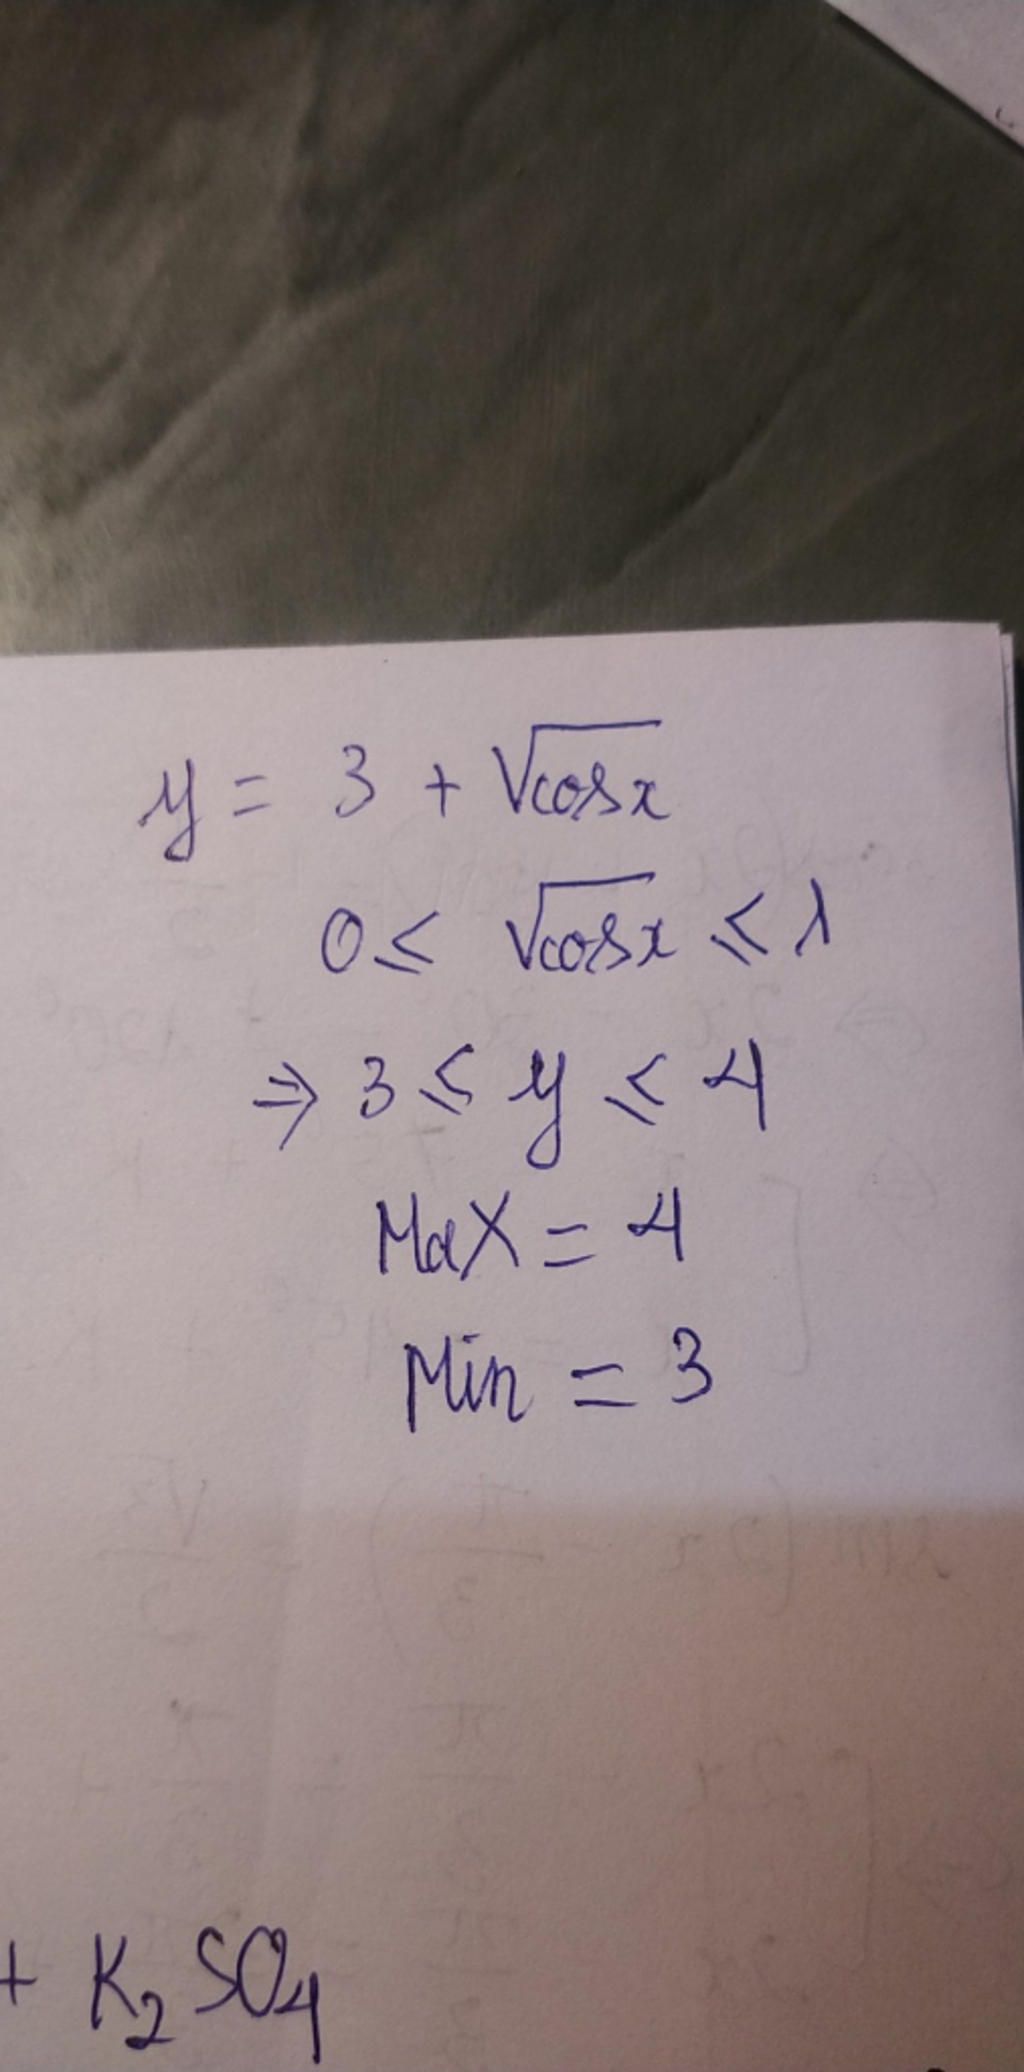 y = 3 + √cosx
0 ≤ √cosx ≤ 1
⇒ 3 ≤ y ≤ 4
Max = 4
Min = 3
+ K₂SO₄